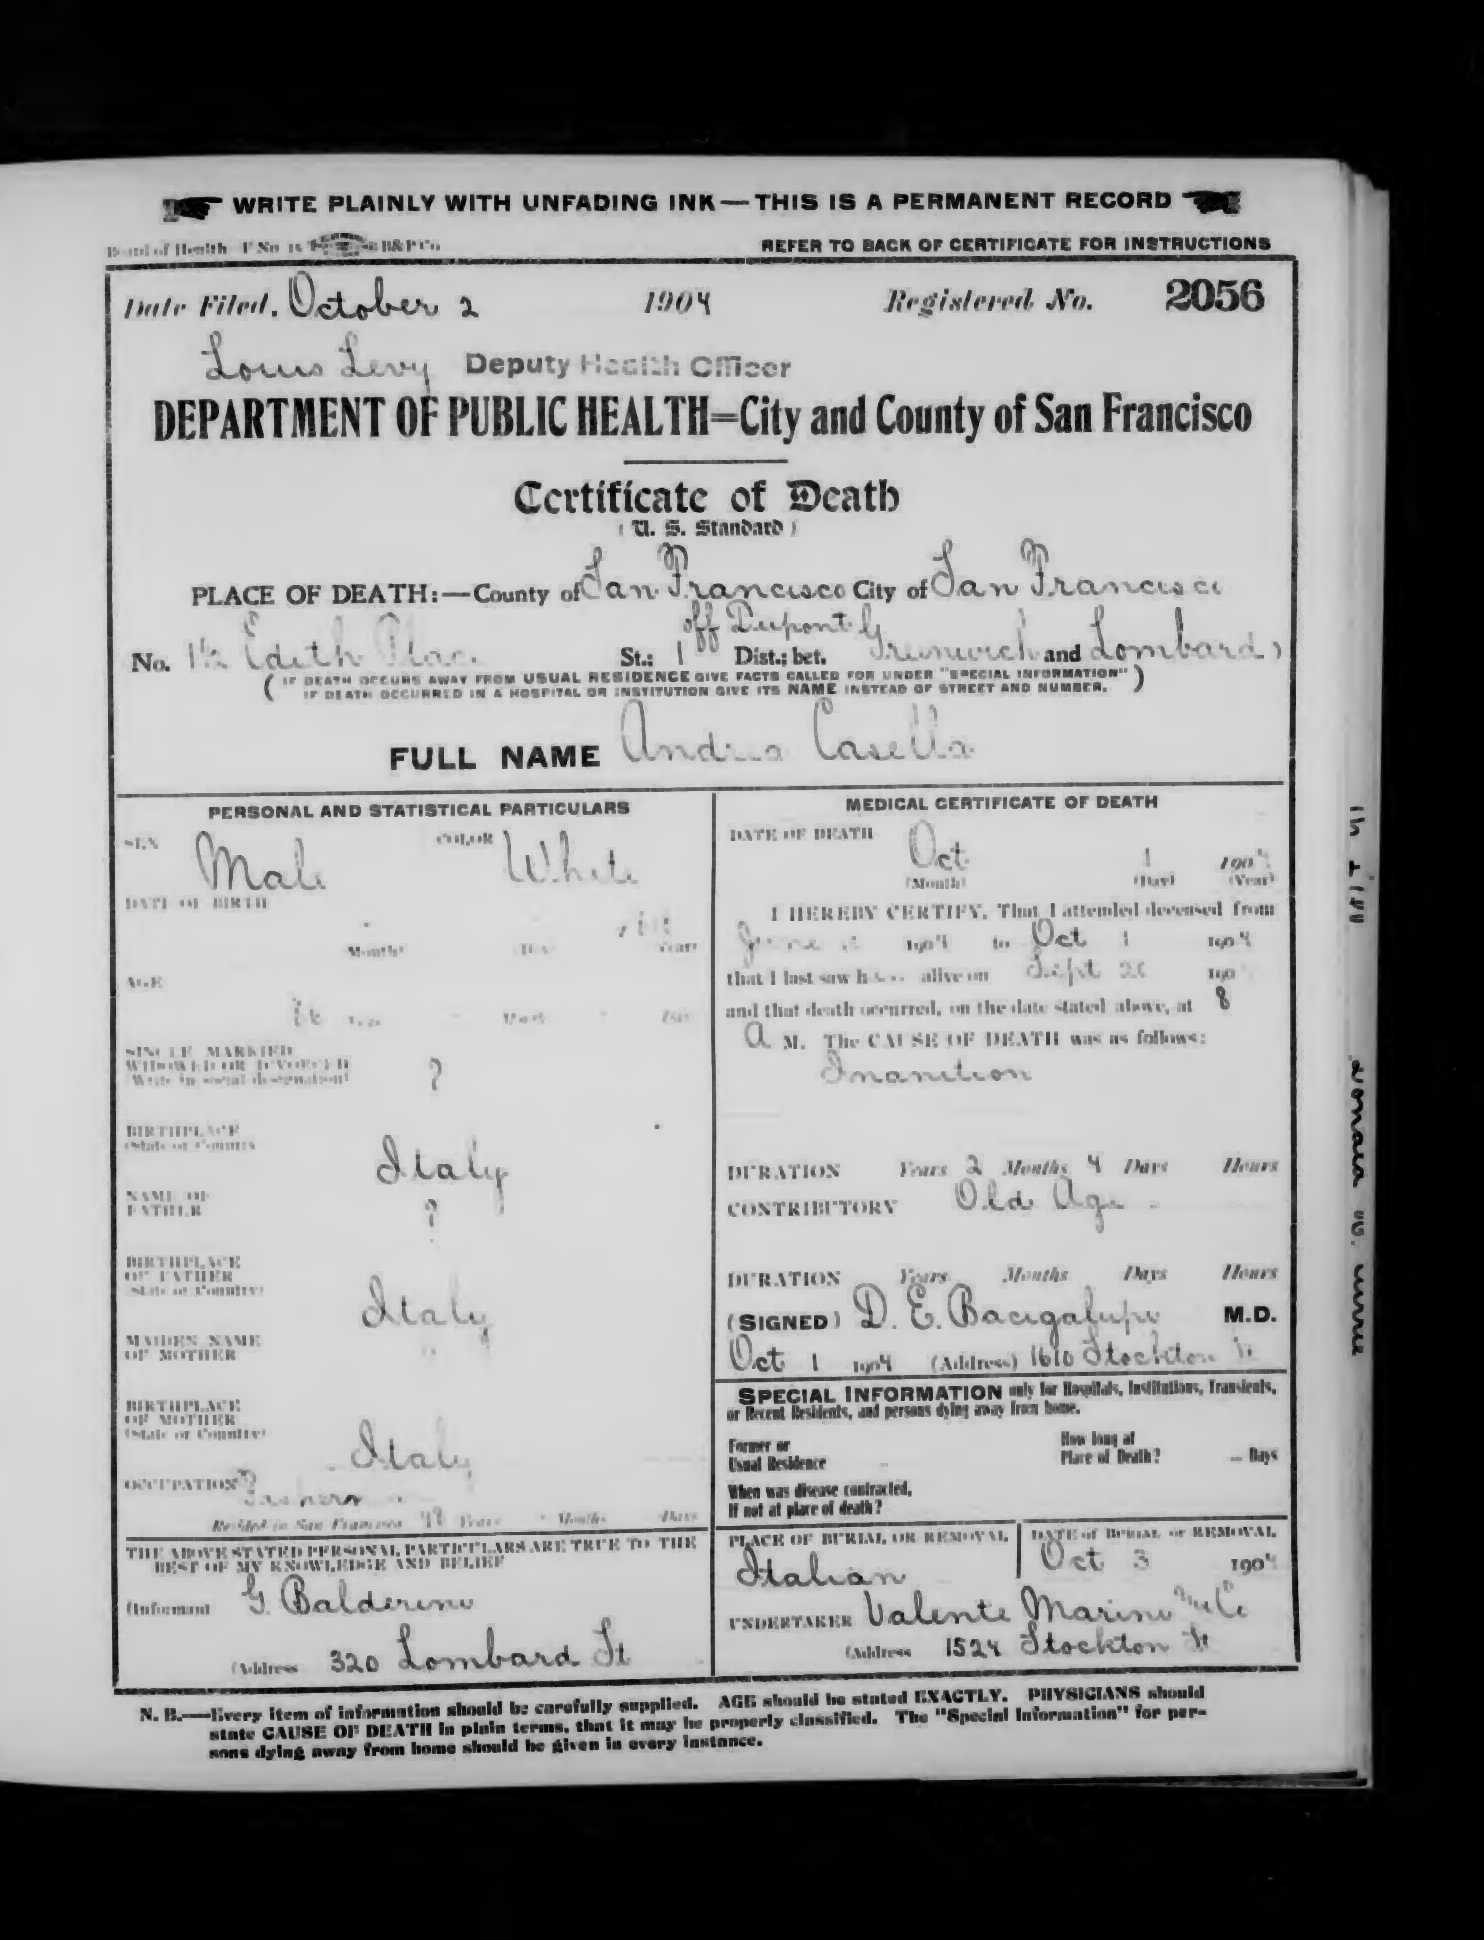 WRITE PLAINLY WITH UNFADING INK — THIS IS A PERMANENT RECORD
Board of Health F No 15 B&P Co
REFER TO BACK OF CERTIFICATE FOR INSTRUCTIONS
Date Filed, October 2 1904 Registered No. 2056
Louis Levy Deputy Health Officer
DEPARTMENT OF PUBLIC HEALTH=City and County of San Francisco
Certificate of Death
( U. S. Standard )
PLACE OF DEATH:—County of San Francisco City of San Francisco
off Dupont
No. 1½ Edith Place St.; 1 Dist.; bet. Greenwich and Lombard )
( IF DEATH OCCURS AWAY FROM USUAL RESIDENCE GIVE FACTS CALLED FOR UNDER "SPECIAL INFORMATION" )
IF DEATH OCCURRED IN A HOSPITAL OR INSTITUTION GIVE ITS NAME INSTEAD OF STREET AND NUMBER.
FULL NAME Andrea Casella
PERSONAL AND STATISTICAL PARTICULARS
SEX Male COLOR White
DATE OF BIRTH
(Month) (Day) (Year)
AGE
Years Months Days
SINGLE MARRIED
WIDOWED OR DIVORCED
(Write in social designation) ?
BIRTHPLACE
(State or Country) Italy
NAME OF
FATHER ?
BIRTHPLACE
OF FATHER
(State or Country) Italy
MAIDEN NAME
OF MOTHER
BIRTHPLACE
OF MOTHER
(State or Country) Italy
OCCUPATION
Resided in San Francisco Years Months Days
THE ABOVE STATED PERSONAL PARTICULARS ARE TRUE TO THE
BEST OF MY KNOWLEDGE AND BELIEF
(Informant G. Baldereno
(Address 320 Lombard St
MEDICAL CERTIFICATE OF DEATH
DATE OF DEATH
Oct 1 1904
(Month) (Day) (Year)
I HEREBY CERTIFY, That I attended deceased from
June 1904 to Oct 1 1904
that I last saw h alive on Sept 190
and that death occurred, on the date stated above, at 8
A M. The CAUSE OF DEATH was as follows:
Inanition
DURATION Years 2 Months 4 Days Hours
CONTRIBUTORY Old Age
DURATION Years Months Days Hours
(SIGNED) D. E. Bacigalupi M.D.
Oct 1 1904 (Address) 1610 Stockton St
SPECIAL INFORMATION only for Hospitals, Institutions, Transients,
or Recent Residents, and persons dying away from home.
Former or
Usual Residence
How long at
Place of Death? Days
When was disease contracted,
If not at place of death?
PLACE OF BURIAL OR REMOVAL
Italian
DATE of BURIAL or REMOVAL
Oct 3 1904
UNDERTAKER Valente Marini & Co
(Address 1524 Stockton St
N. B.—Every item of information should be carefully supplied. AGE should be stated EXACTLY. PHYSICIANS should
state CAUSE OF DEATH in plain terms, that it may be properly classified. The "Special Information" for per-
sons dying away from home should be given in every instance.